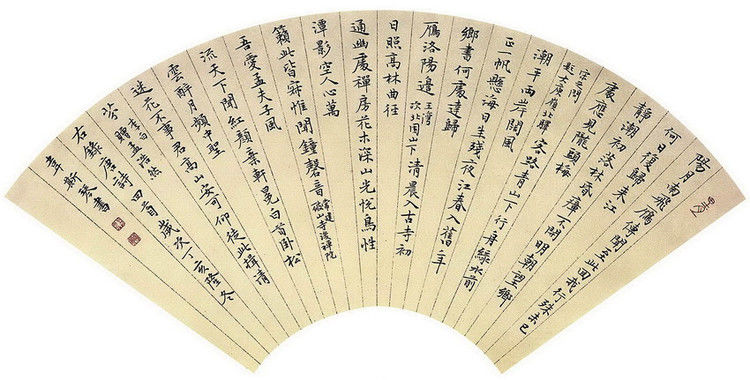 陽月南飛雁傳聞至此回我行殊未已
何日復歸來江
靜潮初落林昏瘴不開明朝望鄉
處應見隴頭梅
宋之問
題大庾嶺北驛
客路青山下行舟綠水前
潮平兩岸闊風
正一帆懸海日生殘夜江春入舊年
鄉書何處達歸
雁洛陽邊
王灣
次北固山下
清晨入古寺初
日照高林曲徑
通幽處禪房花木深山光悅鳥性
潭影空人心萬
籟此皆寂惟聞鐘磬音
常建
破山寺後禪院
吾愛孟夫子風
流天下聞紅顏棄軒冕白首臥松
雲醉月頻中聖
迷花不事君高山安可仰徒此揖清
芬
李白
贈孟浩然
右錄唐詩四首歲次丁亥隆冬
韋斯琴書